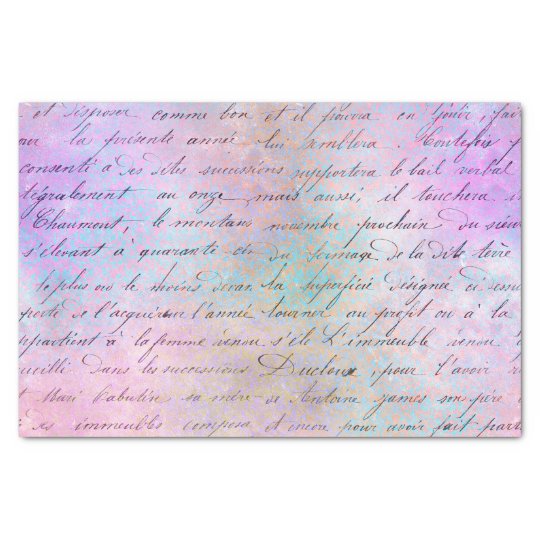 et disposer comme bon et il pourra en jouir, fai
la présente année lui semblera. Toutefois
consenti à des dites successions supportera le bail verbal
tégralement au onze mais aussi, il touchera
Chaumont, le montant novembre prochain du sieur
s'élevant à quarante du fermage de la dite terre
le plus ou le moins devan la superficie désignée ci
porte de l'acquéreur l'année tourner au profit ou à la
ppartient à la femme vendu s'élè L'immeuble vendu
ueilli. Dans les successions Ducloux, pour l'avoir r
Mari Pabutin sa mère de Antoine James son père
des immeubles composa et encore pour avoir fait part